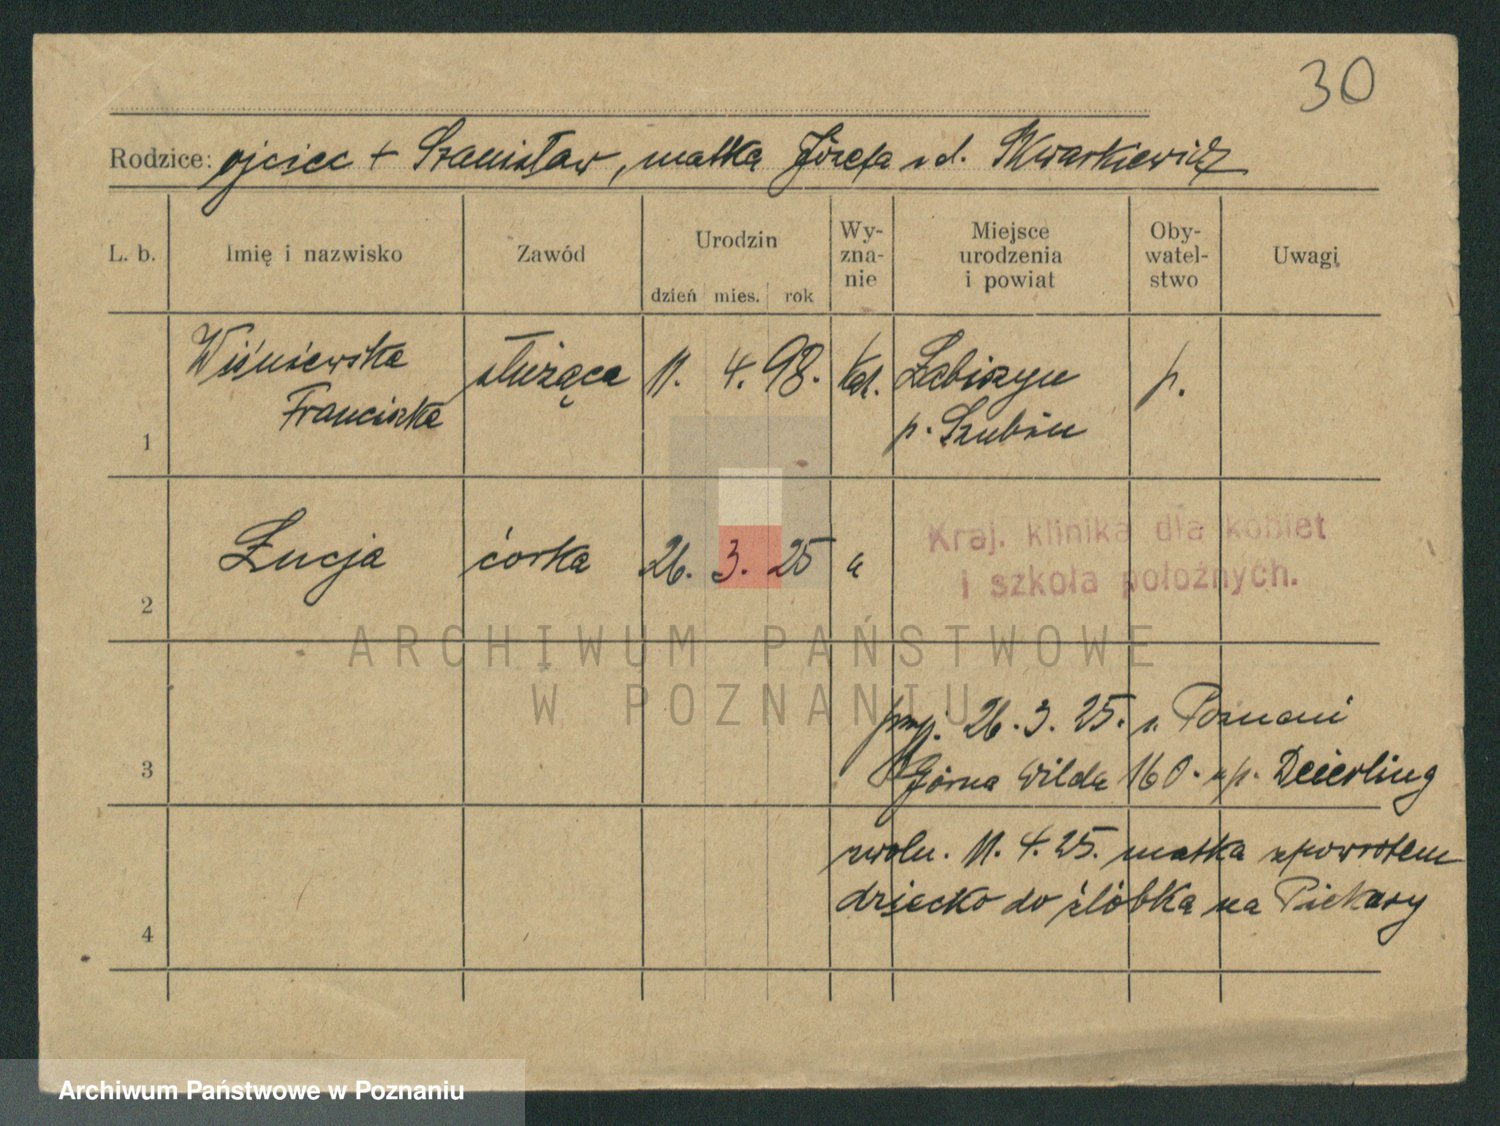 30
Rodzice: ojciec + Stanisław, matka Józefa z d. Skwarkiewicz
L. b. Imię i nazwisko Zawód Urodzin dzień mies. rok Wy-zna-nie Miejsce urodzenia i powiat Oby-watel-stwo Uwagi
Wiśniewska służąca 11. 4. 98. kat. Łabiszyn p.
Franciszka p. Szubin
1
Kraj. klinika dla kobiet
Łucja córka 26. 3. 25
i szkoła położnych.
2
ARCHIWUM PAŃSTWOWE
W POZNANIU
przyj. 26. 3. 25. z Poznani
3 Górna Wilda 160. Deierling
zwoln. 11. 4. 25. matka zpowrotem
dziecko do żłóbka na Piekary
4
Archiwum Państwowe w Poznaniu